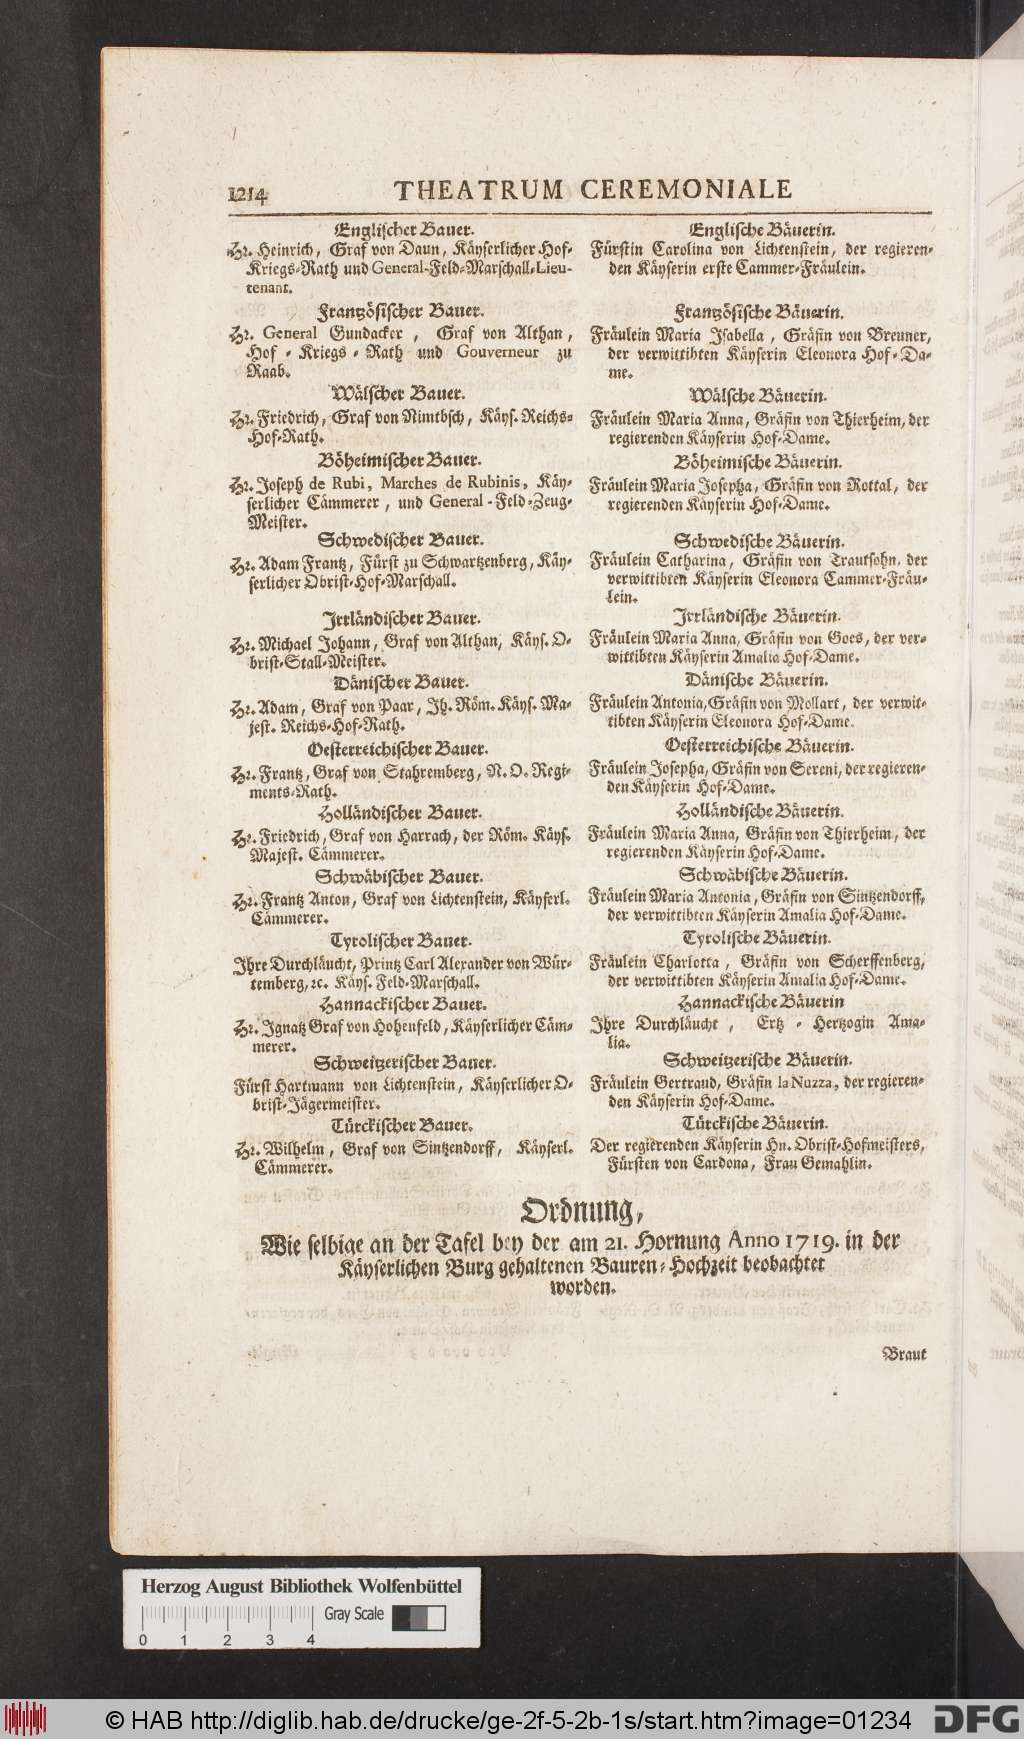 1214 THEATRUM CEREMONIALE
Englischer Bauer.
Hr. Heinrich, Graf von Daun, Käyserlicher Hof-
Kriegs-Rath und General-Feld-Marschall-Lieu-
tenant.
Frantzösischer Bauer.
Hr. General Gundacker, Graf von Althan,
Hof-Kriegs-Rath und Gouverneur zu
Raab.
Wälscher Bauer.
Hr. Friedrich, Graf von Nimtbsch, Käys. Reichs-
Hof-Rath.
Böheimischer Bauer.
Hr. Joseph de Rubi, Marches de Rubinis, Käy-
serlicher Cämmerer, und General-Feld-Zeug-
Meister.
Schwedischer Bauer.
Hr. Adam Frantz, Fürst zu Schwartzenberg, Käy-
serlicher Obrist-Hof-Marschall.
Irrländischer Bauer.
Hr. Michael Johann, Graf von Althan, Käys. O-
brist-Stall-Meister.
Dänischer Bauer.
Hr. Adam, Graf von Paar, Ih. Röm. Käys. Ma-
jest. Reichs-Hof-Rath.
Oesterreichischer Bauer.
Hr. Frantz, Graf von Stahremberg, N. O. Regi-
ments-Rath.
Holländischer Bauer.
Hr. Friedrich, Graf von Harrach, der Röm. Käys.
Majest. Cämmerer.
Schwäbischer Bauer.
Hr. Frantz Anton, Graf von Lichtenstein, Käyserl.
Cämmerer.
Tyrolischer Bauer.
Ihre Durchläucht, Printz Carl Alexander von Wür-
temberg, ꝛc. Käys. Feld-Marschall.
Hannackischer Bauer.
Hr. Ignatz Graf von Hohenfeld, Käyserlicher Cäm-
merer.
Schweitzerischer Bauer.
Fürst Hartmann von Lichtenstein, Käyserlicher O-
brist-Jägermeister.
Türckischer Bauer.
Hr. Wilhelm, Graf von Sintzendorff, Käyserl.
Cämmerer.
Englische Bäuerin.
Fürstin Carolina von Lichtenstein, der regieren-
den Käyserin erste Cammer-Fräulein.
Frantzösische Bäuerin.
Fräulein Maria Isabella, Gräfin von Breuner,
der verwittibten Käyserin Eleonora Hof-Da-
me.
Wälsche Bäuerin.
Fräulein Maria Anna, Gräfin von Thierheim, der
regierenden Käyserin Hof-Dame.
Böheimische Bäuerin.
Fräulein Maria Josepha, Gräfin von Rottal, der
regierenden Käyserin Hof-Dame.
Schwedische Bäuerin.
Fräulein Catharina, Gräfin von Trautsohn, der
verwittibten Käyserin Eleonora Cammer-Fräu-
lein.
Irrländische Bäuerin.
Fräulein Maria Anna, Gräfin von Goes, der ver-
wittibten Käyserin Amalia Hof-Dame.
Dänische Bäuerin.
Fräulein Antonia, Gräfin von Mollart, der verwit-
tibten Käyserin Eleonora Hof-Dame.
Oesterreichische Bäuerin.
Fräulein Josepha, Gräfin von Sereni, der regieren-
den Käyserin Hof-Dame.
Holländische Bäuerin.
Fräulein Maria Anna, Gräfin von Thierheim, der
regierenden Käyserin Hof-Dame.
Schwäbische Bäuerin.
Fräulein Maria Antonia, Gräfin von Sintzendorff,
der verwittibten Käyserin Amalia Hof-Dame.
Tyrolische Bäuerin.
Fräulein Charlotta, Gräfin von Scherffenberg,
der verwittibten Käyserin Amalia Hof-Dame.
Hannackische Bäuerin
Ihre Durchläucht, Ertz-Hertzogin Ama-
lia.
Schweitzerische Bäuerin.
Fräulein Gertraud, Gräfin la Nuzza, der regieren-
den Käyserin Hof-Dame.
Türckische Bäuerin.
Der regierenden Käyserin Hn. Obrist-Hofmeisters,
Fürsten von Cardona, Frau Gemahlin.
Ordnung,
Wie selbige an der Tafel bey der am 21. Hornung Anno 1719. in der
Käyserlichen Burg gehaltenen Bauren-Hochzeit beobachtet
worden.
Braut
Herzog August Bibliothek Wolfenbüttel
Gray Scale
0 1 2 3 4
© HAB http://diglib.hab.de/drucke/ge-2f-5-2b-1s/start.htm?image=01234 DFG